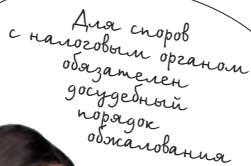 Для споров
с налоговым органом
обязателен
досудебный
порядок
обжалования